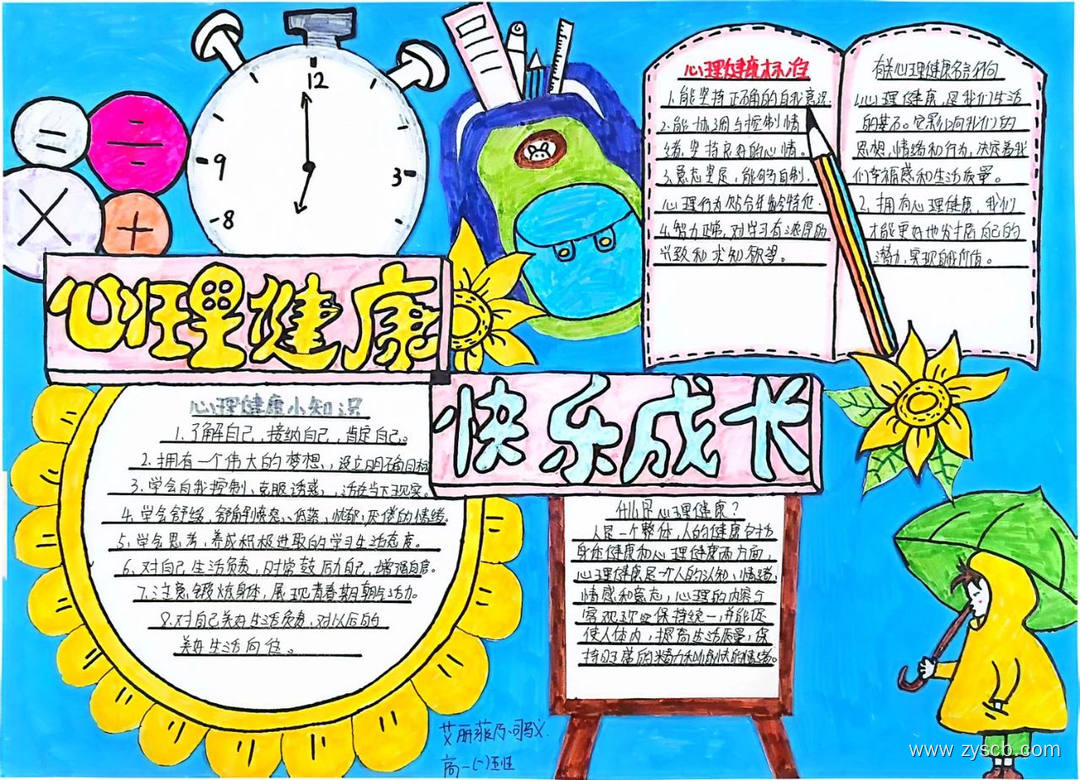 12
9
3
8
心理健康
快乐成长
心理健康标准
1.能坚持正确的自我意识.
2.能协调与控制情
绪,坚持良好的心情.
3.意志坚定,能够自制.
心理行为贴合年龄特征.
4.智力正常,对学习有浓厚的
兴致和求知欲望。
有关心理健康名言名句
1.心理健康,是我们生活
的基石。它影响我们的
思想,情绪和行为,决定着我
们幸福感和生活质量。
2.拥有心理健康,我们
才能更好地发展自己的
潜力,实现自我价值。
心理健康小知识
1.了解自己,接纳自己,肯定自己。
2.拥有一个伟大的梦想,设立明确目标
3.学会自我控制、克服诱惑,活在当下现实。
4.学会舒缓,舒解愤怒、低落、忧郁、厌倦的情绪.
5.学会思考,养成积极进取的学习生活态度。
6.对自己生活负责,时常鼓励自己,增强自信。
7.注意锻炼身体,展现青春期朝气活力。
8.对自己美好生活负责,对以后的
美好生活向往。
什么是心理健康?
人是一个整体,人的健康包括
身体健康和心理健康两方面,
心理健康是一个人的认知,情绪,
情感和意志,心理的内容与
客观现世保持统一,并能促
使人体内,提高生活质量,保
持旺盛的精力和愉快的情绪。
高一(1)班
www.zyscb.com